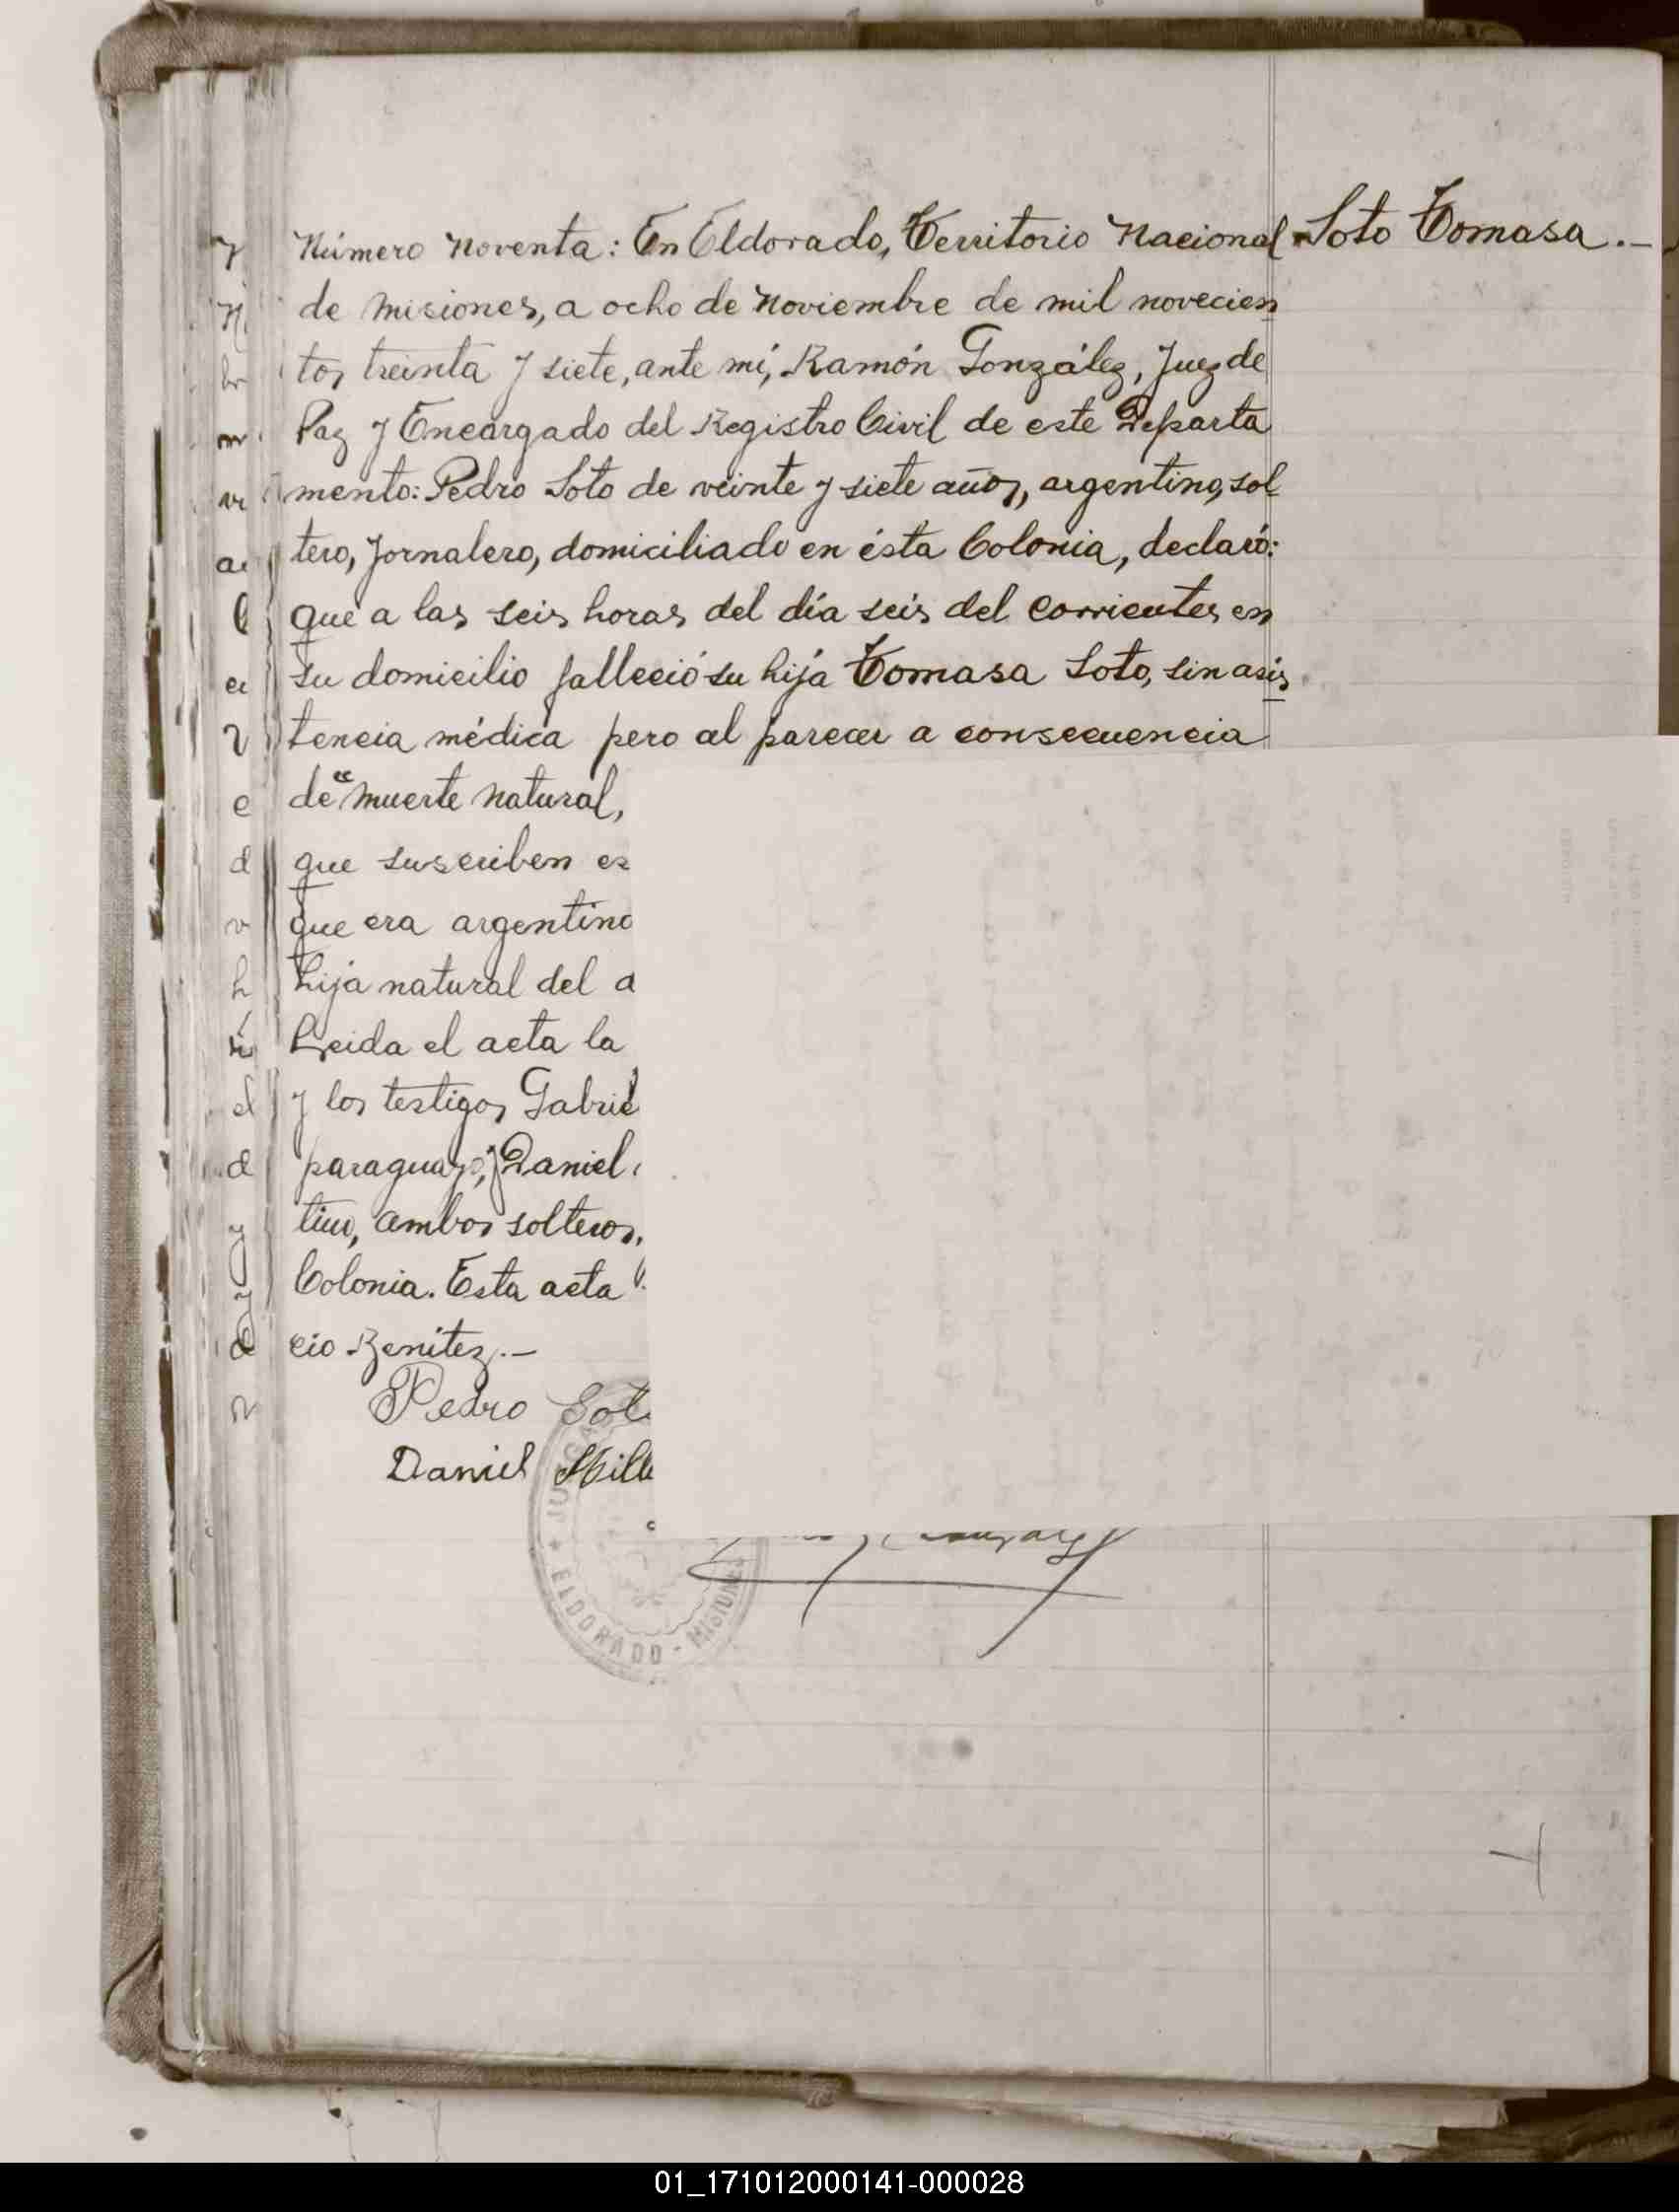 Soto Tomasa.-
Número Noventa: En Eldorado, Territorio Nacional
de Misiones, a ocho de Noviembre de mil novecien
tos treinta y siete, ante mí, Ramón González, Juez de
Paz y Encargado del Registro Civil de este Departa
mento: Pedro Soto de veinte y siete años, argentino, sol
tero, Jornalero, domiciliado en ésta Colonia, declaró:
que a las seis horas del día seis del corrientes en
su domicilio falleció su hija Tomasa Soto, sin asis
tencia médica pero al parecer a consecuencia
de "muerte natural,
que suscriben
que era
hija natural del
Leida el acta la
y los testigos
paraguayo, y Daniel
tino, ambos solteros,
Colonia. Esta acta
cio Benitez.-
Pedro
Daniel
ELDORADO - MISIONES
01_171012000141-000028